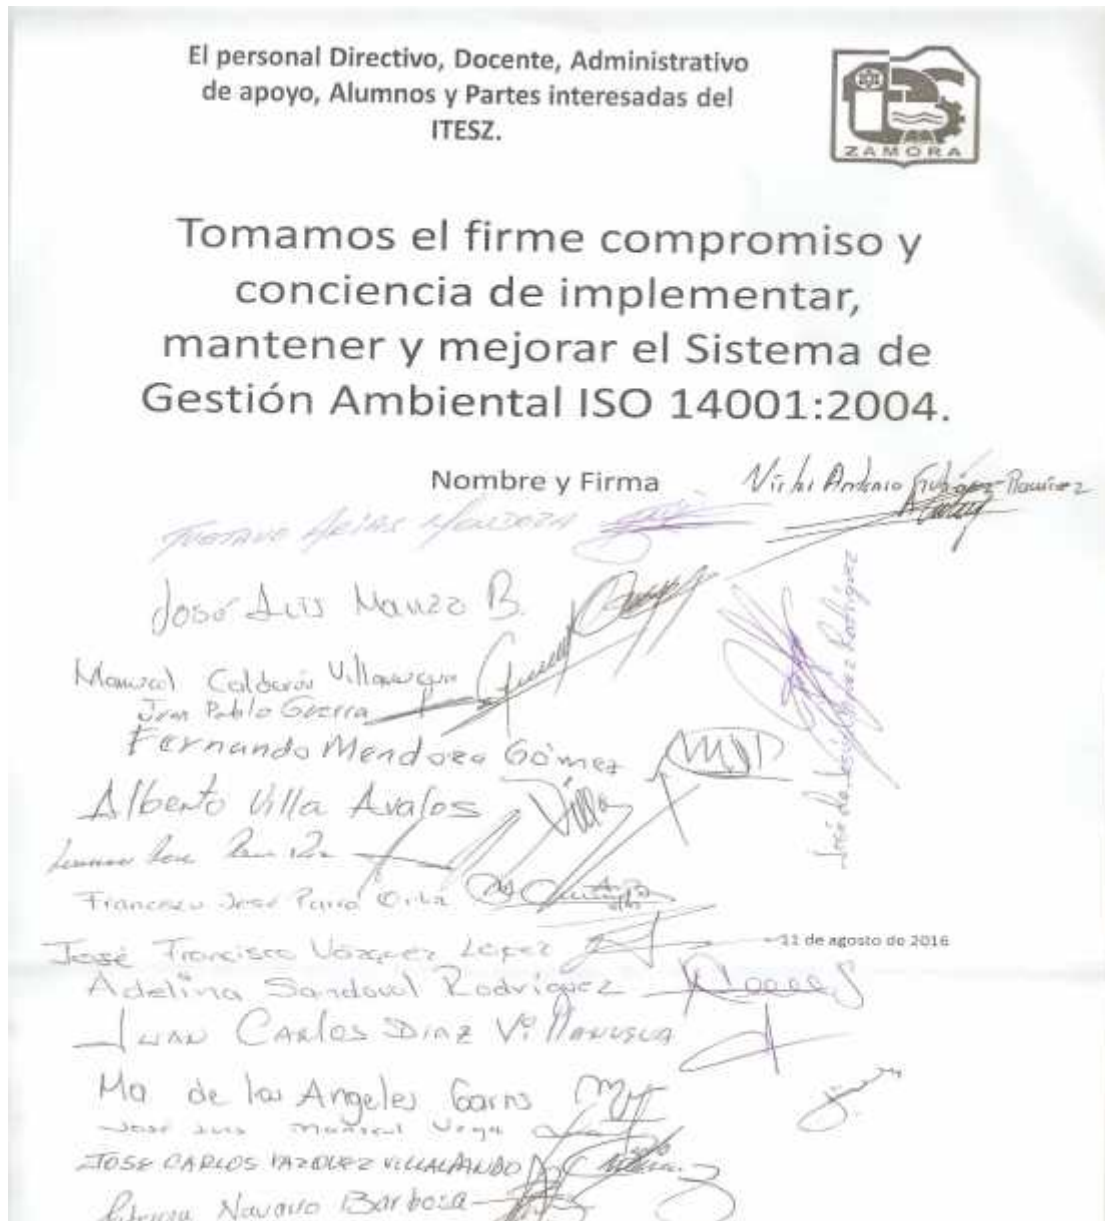 El personal Directivo, Docente, Administrativo
de apoyo, Alumnos y Partes interesadas del
ITESZ.
ZAMORA
Tomamos el firme compromiso y
conciencia de implementar,
mantener y mejorar el Sistema de
Gestión Ambiental ISO 14001:2004.
Nombre y Firma
Antonio Ramírez
GUSTAVO ARIAS MENDOZA
José Luis Manzo B.
Manuel Calderón Villanueva
Juan Pablo Guerra
Fernando Mendoza Gómez
Alberto Villa Avalos
José de Jesús López Rodríguez
Francisco José Parra
José Francisco Vázquez López
11 de agosto de 2016
Adelina Sandoval Rodríguez
JUAN CARLOS DIAZ VillANUEVA
Ma de los Angeles Garns
José Luis Mariscal Vega
JOSE CARLOS VAZQUEZ VILLALPANDO
Navarro Barbosa